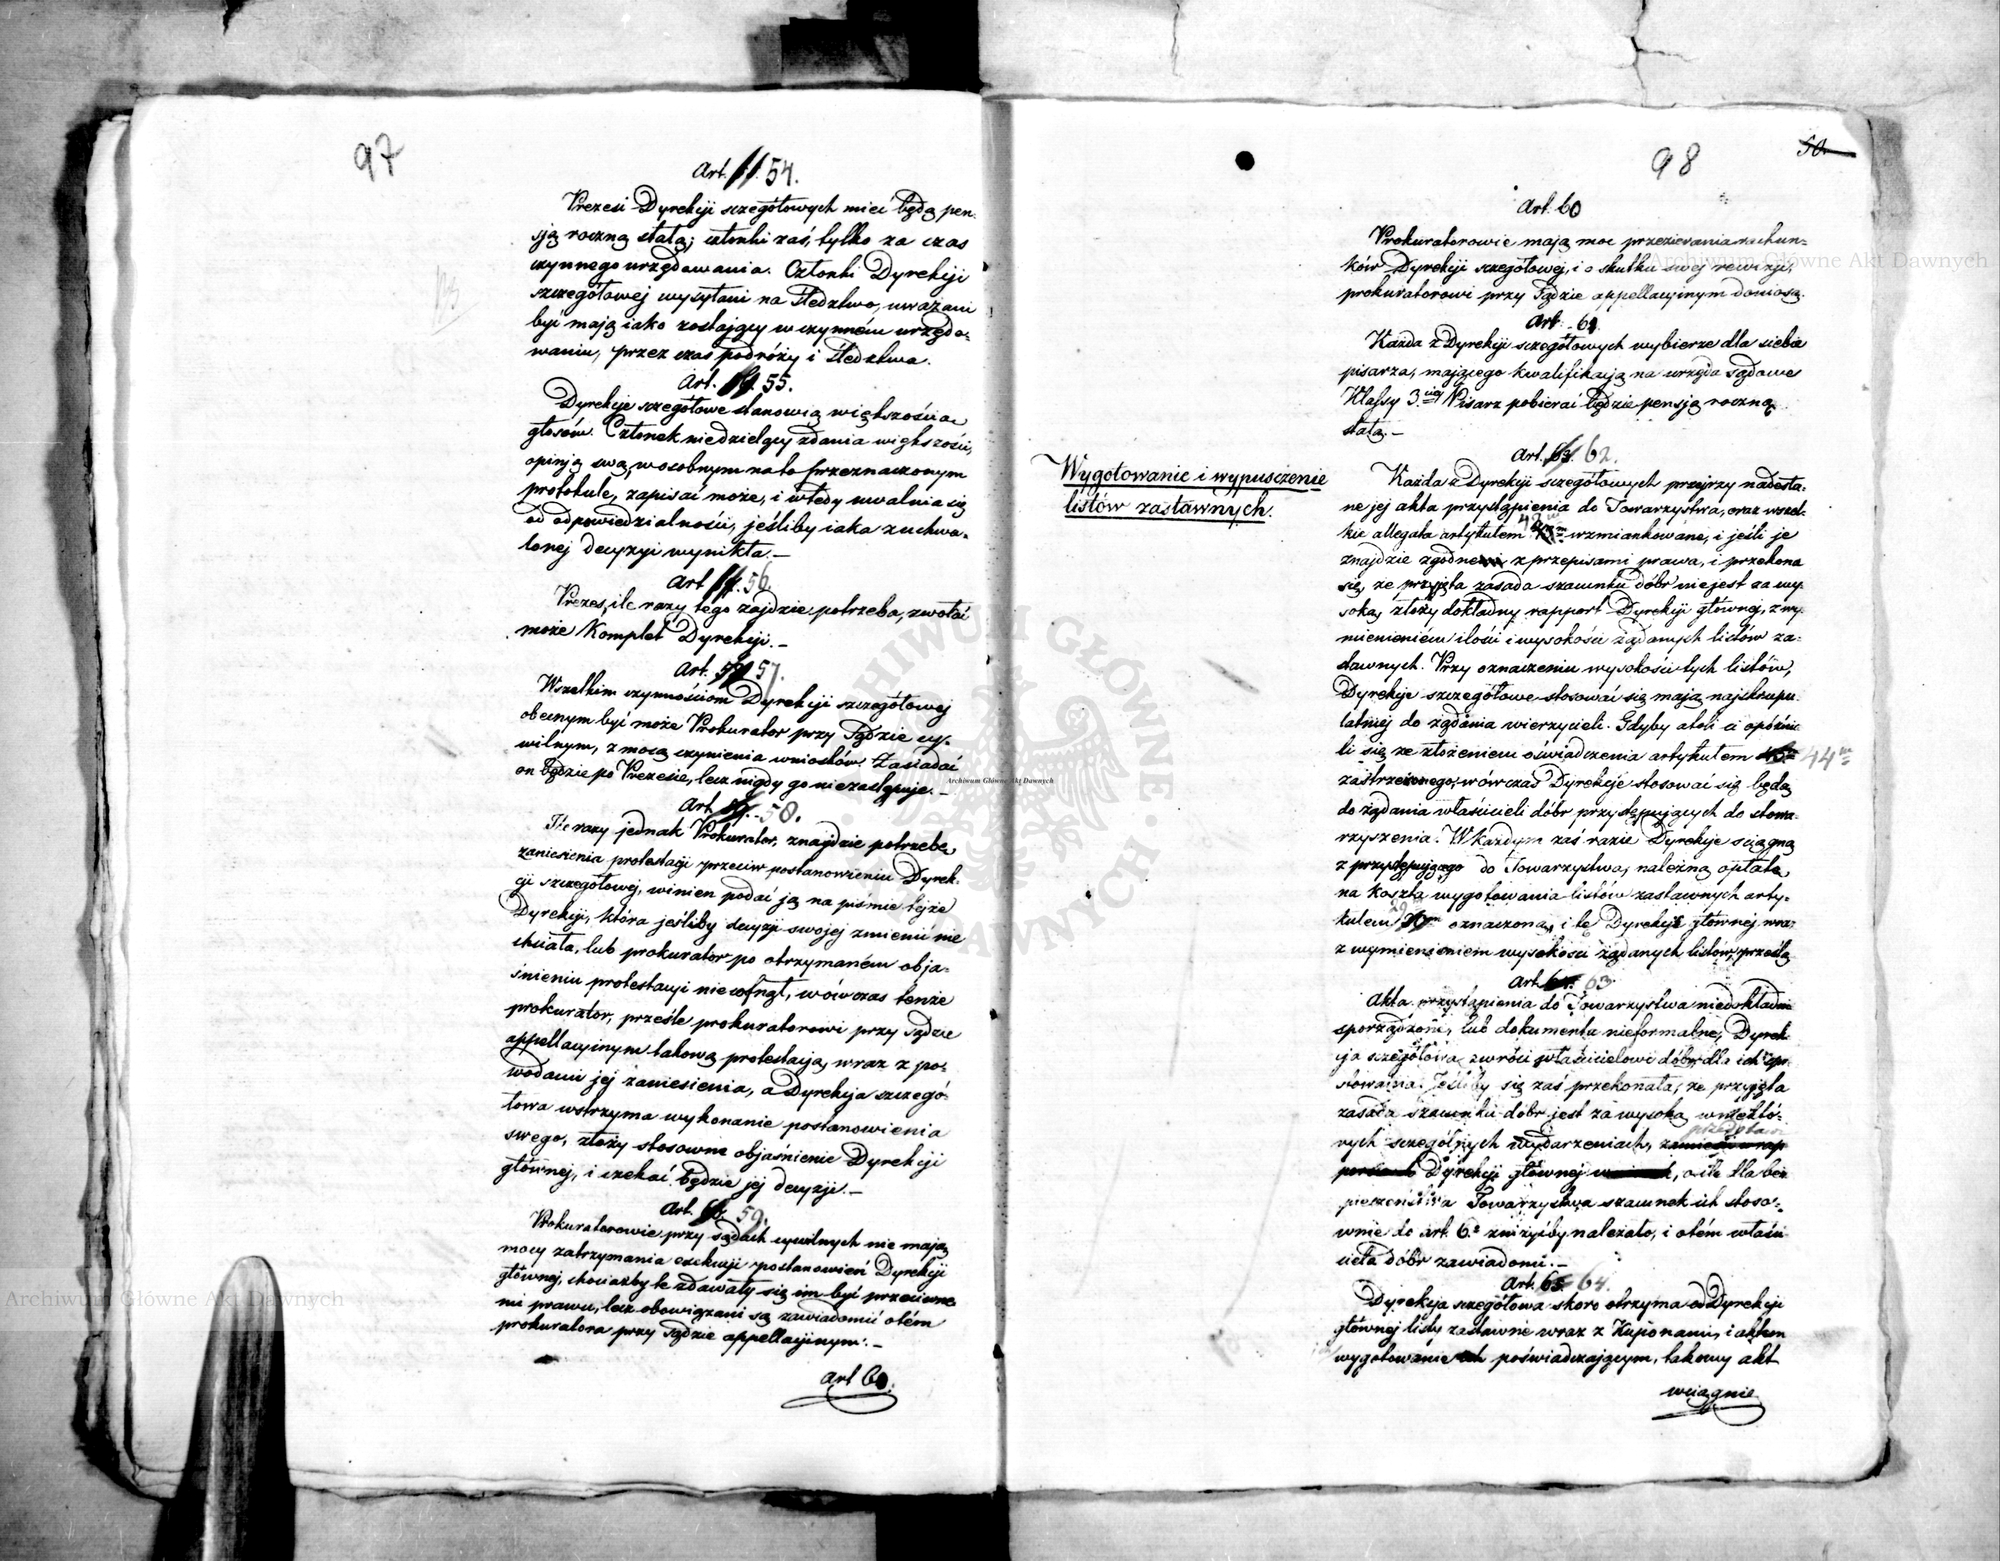 97
Art. 54.
Prezesi Dyrekcji sczegółowych mieć będą pen-
sją roczną stałą; członki zaś, tylko za czas
czynnego urzędowania. Członki Dyrekcji
szczegółowej wysyłani na śledztwo, uważani
być mają iako zostający w czynném urzędo-
waniu, przez czas podróży i śledztwa.
Art. 55.
Dyrekcje sczegółowe stanowią większością
głosów. Członek niedzielący zdania większości,
opinją swą, w osobnym na to przeznaczonym
protokule, zapisać może, i wtedy uwalnia się
od odpowiedzialności, jeśliby iaka z uchwa-
lonej decyzyi wynikła.—
Art. 56.
Prezes, ile razy tego zajdzie potrzeba, zwołać
może Komplet Dyrekcji.—
Art. 57.
Wszelkim czynnościom Dyrekcji szczegółowej
obecnym być może Prokurator przy Sądzie cy-
wilnym, z mocą czynienia wniosków. Zasiadać
on będzie po Prezesie, lecz nigdy go niezastępuje.—
Art. 58.
Ile razy jednak Prokurator, znajdzie potrzebę
zaniesienia protestacji przeciw postanowieniu Dyrek-
cji szczegółowej, winien podać ją na piśmie tejże
Dyrekcji, która jeśliby decyzji swojej zmienić nie
chciała, lub prokurator po otrzymaném obja-
śnieniu protestacyi nie cofnął, wówczas tenże
prokurator, prześle prokuratorowi przy sądzie
appellacyinym takową protestacją, wraz z po-
wodami jej zaniesienia, a Dyrekcja szczegó-
łowa wstrzyma wykonanie postanowienia
swego, złoży stosowne objaśnienie Dyrekcji
głównej, i czekać będzie jej decyzji.—
Art. 59.
Prokuratorowie przy sądach cywilnych nie mają
mocy zatrzymania exekucji postanowień Dyrekcji
głównej, chociażby te zdawały się im być przeciwne-
mi prawu, lecz obowiązani są zawiadomić o tém
prokuratora przy sądzie appellacyinym.—
Art 60.
98
50.
Art. 60
Prokuratorowie mają moc przezierania rachun-
ków Dyrekcji sczegółowej, i o skutku swej rewizji,
prokuratorowi przy Sądzie appellacyinym doniosą.
Art. 61.
Każda z Dyrekcji sczegółowych wybierze dla siebie
pisarza, mającego kwalifikacją na urzęda sądowe
Klassy 3.ciej Pisarz pobierać będzie pensją roczną
stałą.—
Art. 62.
Wygotowanie i wypusczenie
listów zastawnych.
Każda z Dyrekcji sczegółowych przejrzy nadesła-
ne jej akta przystąpienia do Towarzystwa, oraz wszel-
kie allegata artykułem wzmiankowane, i jeśli je
znajdzie zgodne z przepisami prawa, i przekona
się, że przyjęta zasada szacunku dóbr nie jest za wy-
soką, złoży dokładny rapport Dyrekcji głównej, z wy-
mienieniem ilości i wysokości żądanych listów za-
stawnych. Przy oznaczeniu wysokości tych listów,
Dyrekcje szczegółowe stosować się mają najskrupu-
latniej do żądania wierzycieli. Gdyby atoli ci opóźni-
li się ze złożeniem oświadczenia artykułem 44m
zastrzeżonego, wówczas Dyrekcje stosować się będą
do żądania właścicieli dóbr przystępujących do stowa-
rzyszenia. W każdym zaś razie Dyrekcje sciągną
z przystępującego do Towarzystwa, należną opłatę
na koszta wygotowania listów zastawnych arty-
kułem oznaczoną, i tę Dyrekcji głównej wraz
z wymienieniem wysokości żądanych listów, prześlą
Art. 63.
Akta przystąpienia do Towarzystwa niedokładnie
sporządzone, lub dokumenta nieformalne, Dyrek-
cja sczegółowa zwróci właścicielowi dóbr dla ich spro-
stowania. Jeśliby się zaś przekonała, że przyjęta
zasada szacunku dóbr jest za wysoką, w niektó-
rych sczególnych wydarzeniach,
Dyrekcji głównej, o ile dla bez-
pieczeństwa Towarzystwa szacunek ich stoso-
wnie do art. 6.º zniżyćby należało, i o tém właści-
ciela dóbr zawiadomi.—
Art. 64.
Dyrekcja sczegółowa skoro otrzyma od Dyrekcji
głównej listy zastawne wraz z Kuponami, i aktem
wygotowanie ich poświadczającym, takowy akt
wciągnie